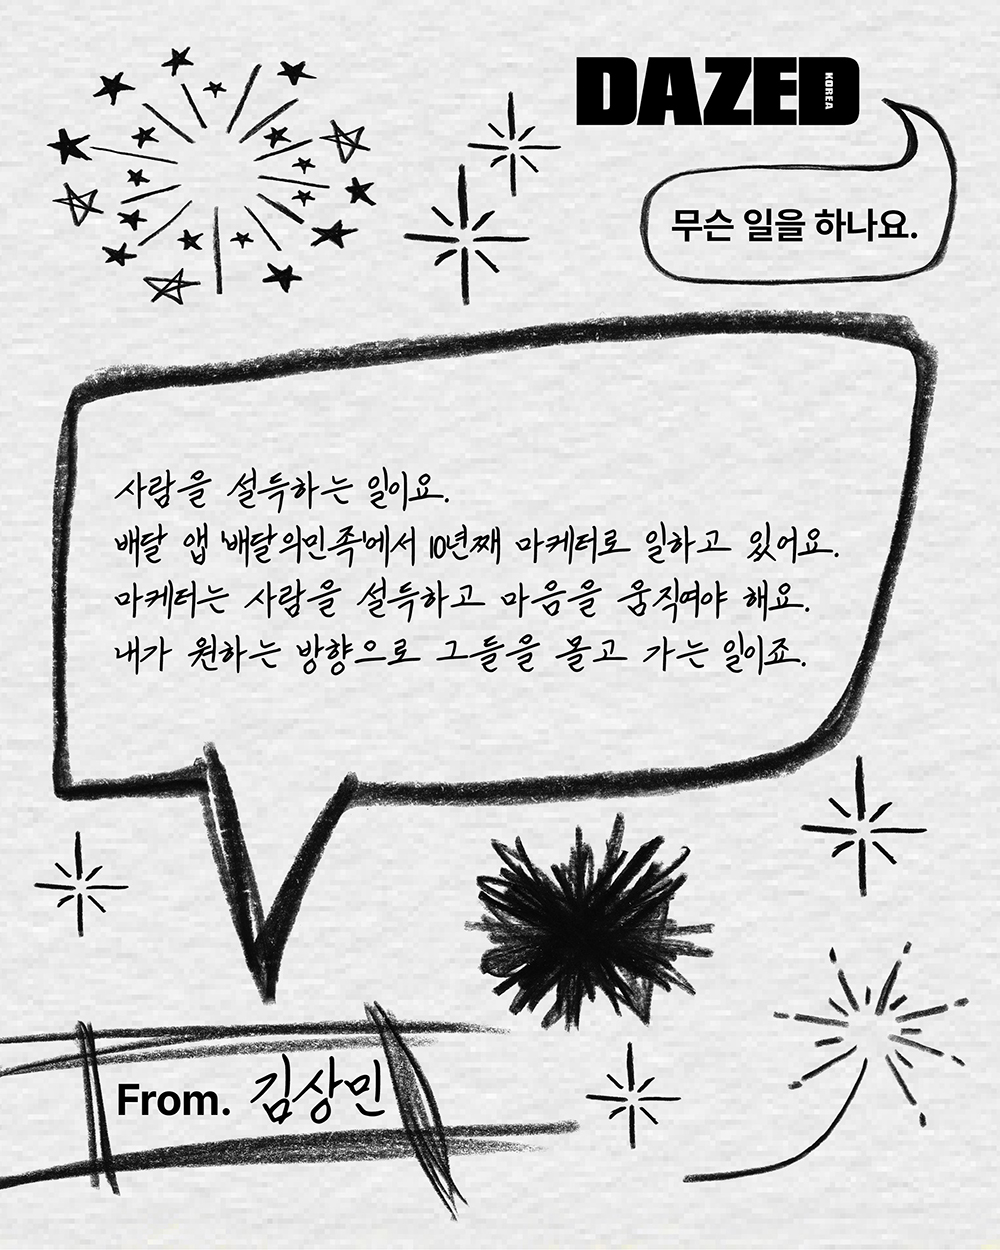 DAZED
KOREA
무슨 일을 하나요.
사람을 설득하는 일이요.
배달 앱 '배달의민족'에서 10년째 마케터로 일하고 있어요.
마케터는 사람을 설득하고 마음을 움직여야 해요.
내가 원하는 방향으로 그들을 몰고 가는 일이죠.
From. 김상민